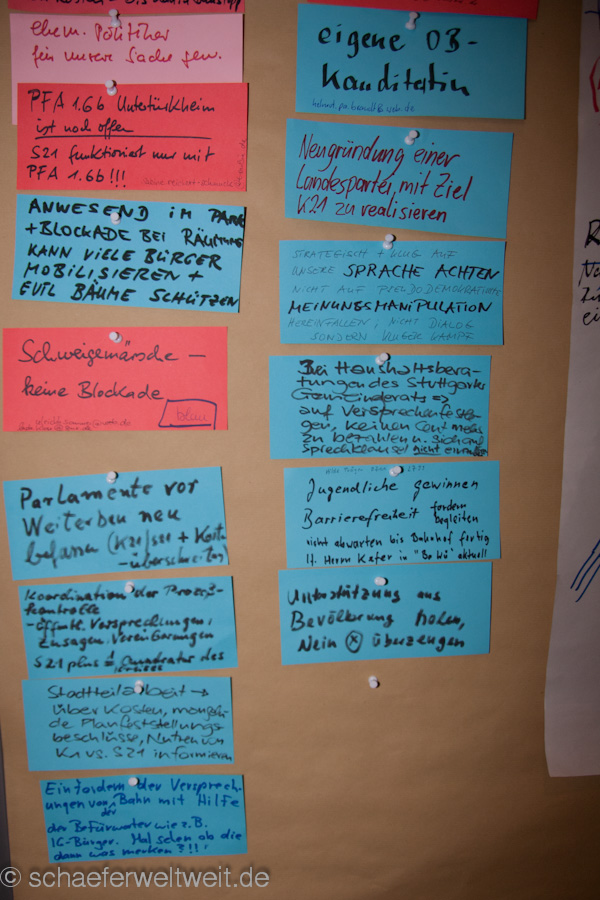 ehem. Politiker
für unsere Sache gew.
PFA 1.6b Untertürkheim
ist noch offen
S21 funktioniert nur mit
PFA 1.6b!!!
ANWESEND IM PARK
+ BLOCKADE BEI RÄUMUNG
KANN VIELE BÜRGER
MOBILISIEREN +
EVTL BÄUME SCHÜTZEN
Schweigemärsche –
keine Blockade
Parlamente vor
Weiterbau neu
befassen (K21/S21 + Kosten
-überschreitung)
Koordination der Prozeß-
kontrolle
-öffentl. Versprechungen,
Zusagen, Vereinbarungen
S21 plus ≠ Quadratur des
Kreises
Stadtteilarbeit →
über Kosten,
de Planfeststellungs
beschlüsse, Nutzen von
K21 vs. S21 informieren
Einfordern der Versprech-
ungen von der Bahn mit Hilfe
der Befürworter wie z.B.
IG-Bürger. Mal sehen ob die
dann was merken ?!!!
eigene OB-
Kanditatin
Neugründung einer
Landespartei mit Ziel
K21 zu realisieren
STRATEGISCH + KLUG AUF
UNSERE SPRACHE ACHTEN
NICHT AUF PSEUDODEMOKRATISCHE
MEINUNGSMANIPULATION
HEREINFALLEN, NICHT DIALOG
SONDERN KLUGER KAMPF
Bei Haushaltsbera-
tungen des Stuttgarter
Gemeinderats =>
auf Versprechen festle-
gen, keinen Cent mehr
zu bezahlen u. sich auf
Sprechklausel nicht einzulassen
Jugendliche gewinnen
Barrierefreiheit fordern
begleiten
nicht abwarten bis Bahnhof fertig
Unterstützung aus
Bevölkerung holen,
Nein ⊗ überzeugen
© schaeferweltweit.de